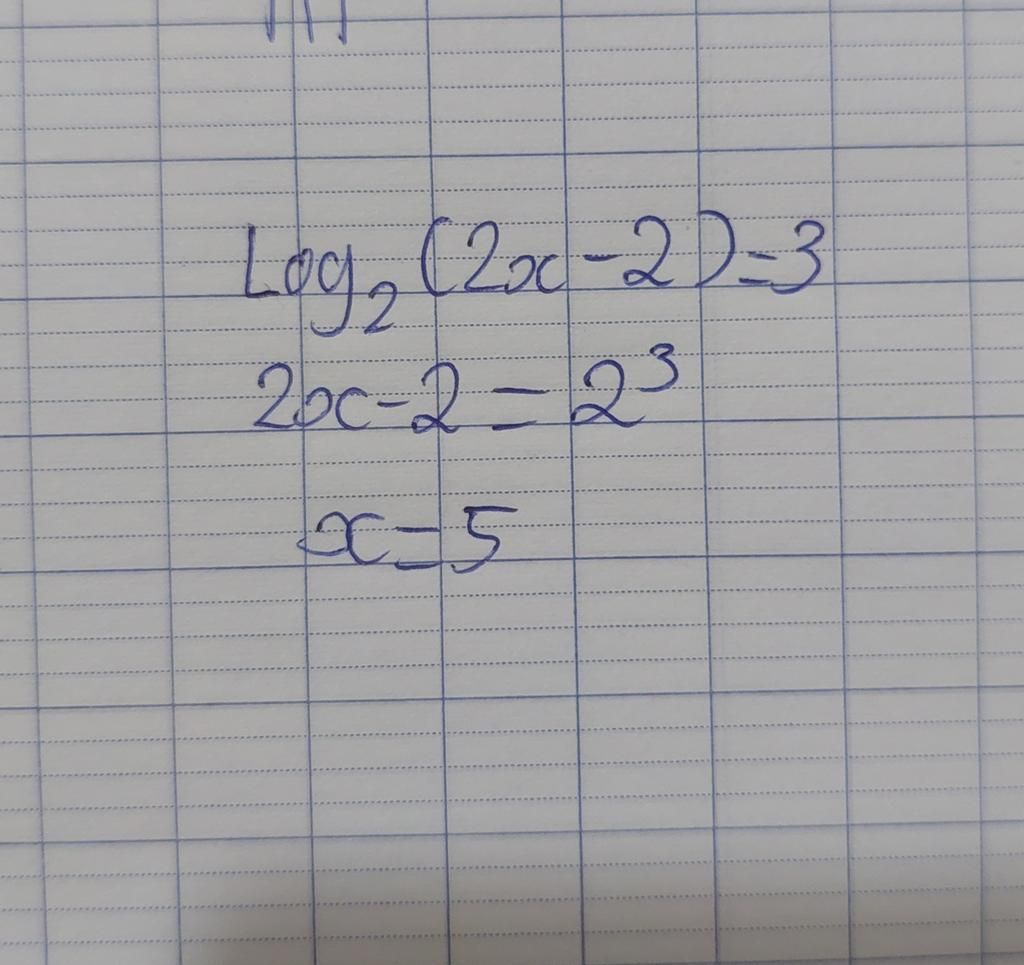 Log₂(2x-2)=3
2x-2=2³
x=5